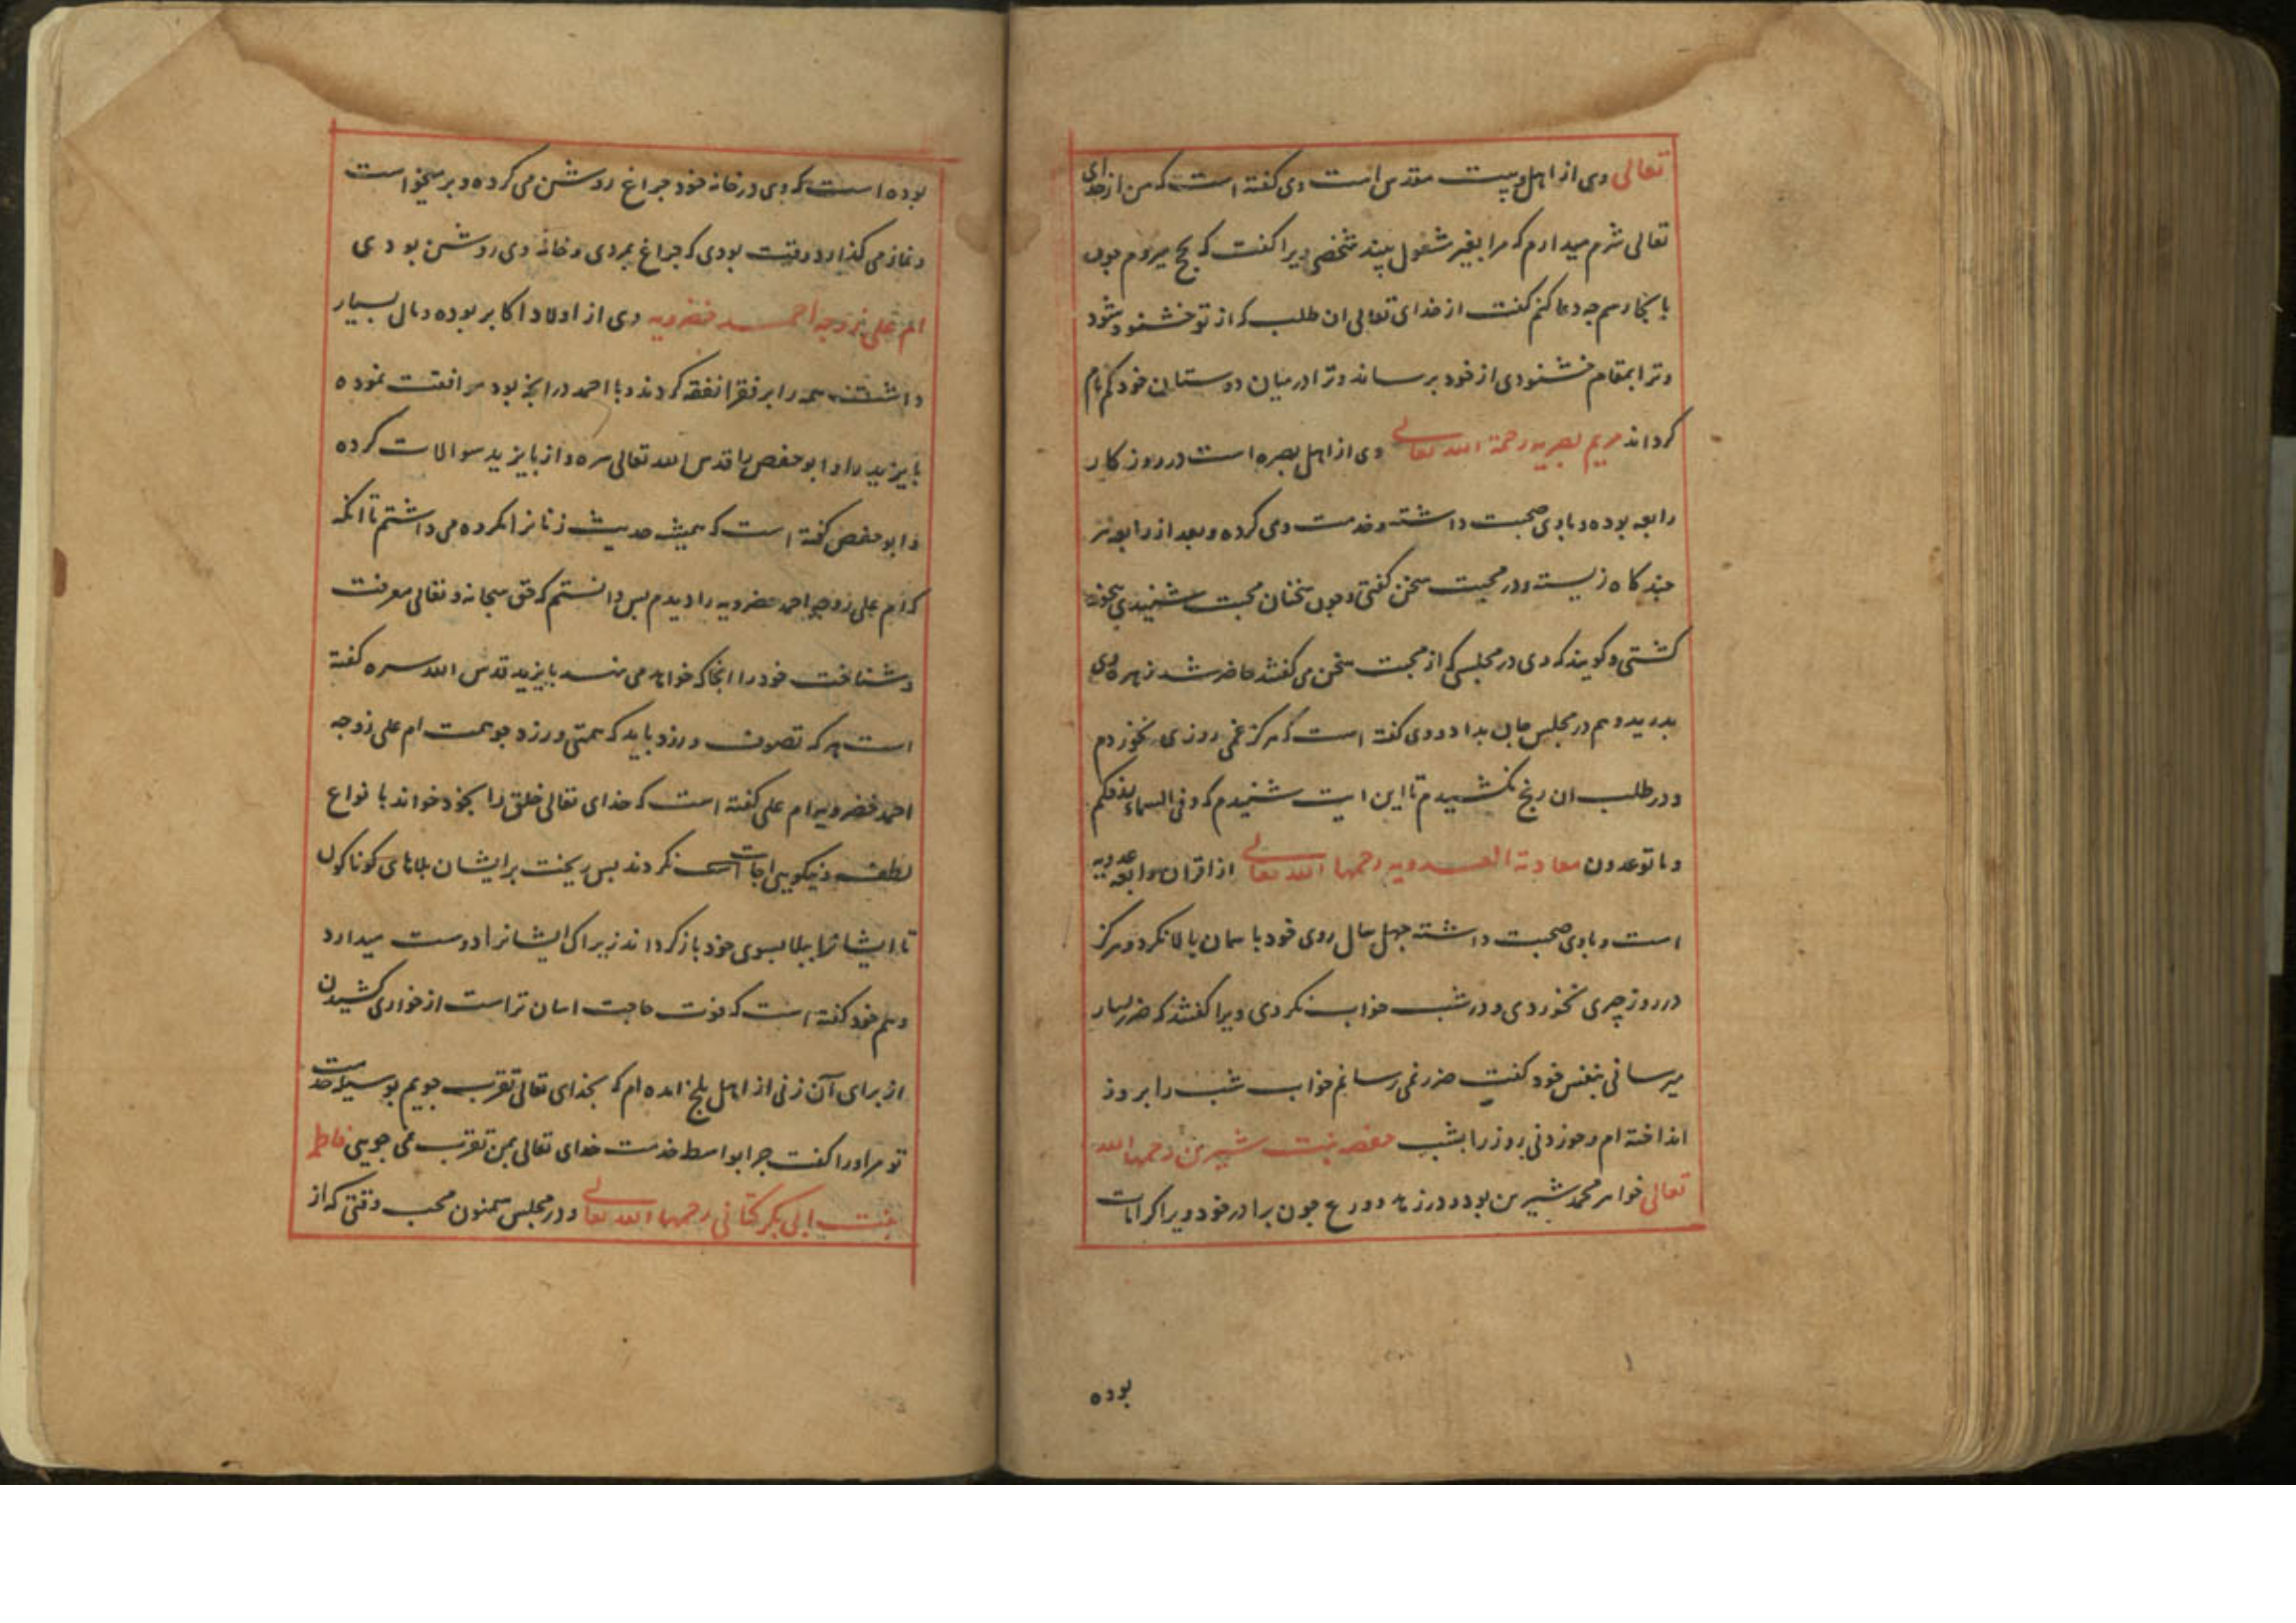 تعالی وی از اهل بیت مقدس است وی گفته است که من از خدای
تعالی شرم میدارم که مرا بغیر مشغول بیند شخصی ویرا کفت که بحج میروم چون
بانجا رسم چه دعا کنم کفت از خدای تعالی ان طلب که از تو خشنود شود
و ترا بمقام خشنودی از خود برساند و ترا در میان دوستان خود کم نام
کرداند مریم بصریه رحمة الله تعالی وی از اهل بصره است در روزکار
رابعه بوده و باوی صحبت داشته و خدمت وی کرده و بعد از رابعه نیز
چندکاه زیسته و در محبت سخن کفتی و چون سخنان محبت شنیدی بیخود
کشتی و کویند که وی در مجلسی که از محبت سخن می کفتند حاضر شد زهره وی
بدرید و هم در مجلس جان بداد و وی کفته است که هرکز غمی روزی نخوردم
و در طلب ان رنج نکشیدم تا این ایت شنیدم که و فی السماء رزقکم
و ما توعدون معاذة العدویه رحمها الله تعالی از اقران رابعه عدویه
است و باوی صحبت داشته چهل سال روی خود باسمان بالا نکرد و هرکز
در روز چیزی نخوردی و در شب خواب نکردی ویرا کفتند که ضرر بسیار
میرسانی بنفس خود کفت ضرر نمی رسانم خواب شب را بروز
انداخته ام و خوردنی روز را بشب حفصه بنت شیرین رحمها الله
تعالی خواهر محمد شیرین بود و در زهد و ورع چون برادر خود ویرا کرامات
بوده
بوده است که وی در خانه خود چراغ روشن می کرده و بر میخواست
و نماز می کذارد و وقت بودی که چراغ بمردی و خانه وی روشن بودی
ام علی زوجه احمد خضرویه وی از اولاد اکابر بوده و مال بسیار
داشت همه را بر فقرا نفقه کردند و با احمد در انچه بود موافقت نموده
بایزید را و ابو حفص را قدس الله تعالی سره و از بایزید سوالات کرده
و ابو حفص کفته است که همیشه حدیث زنانرا مکروه می داشتم تا انکه
که ام علی زوجه احمد خضرویه را دیدم پس دانستم که حق سبحانه و تعالی معرفت
و شناخت خود را انجا که خواهد می نهد بایزید قدس الله سره کفته
است هر که تصوف ورزد باید که همتی ورزد چو همت ام علی زوجه
احمد خضرویه ام علی کفته است که خدای تعالی خلق را بخود خواند با نواع
لطف و نیکویی اجابت نکردند پس ریخت بر ایشان بلاهای کوناکون
تا ایشانرا ببلا بسوی خود باز کرداند زیرا که ایشانرا دوست میدارد
و هم خود کفته است که فوت حاجت اسان تر است از خواری کشیدن
از برای آن زنی از اهل بلخ امده ام که بخدای تعالی تقرب جویم بوسیله خدمت
تو مر او را کفت چرا بواسطه خدمت خدای تعالی بمن تقرب نمی جویی فاطمه
بنت ابی بکر کتانی رحمها الله تعالی و در مجلس سمنون محب وقتی که از